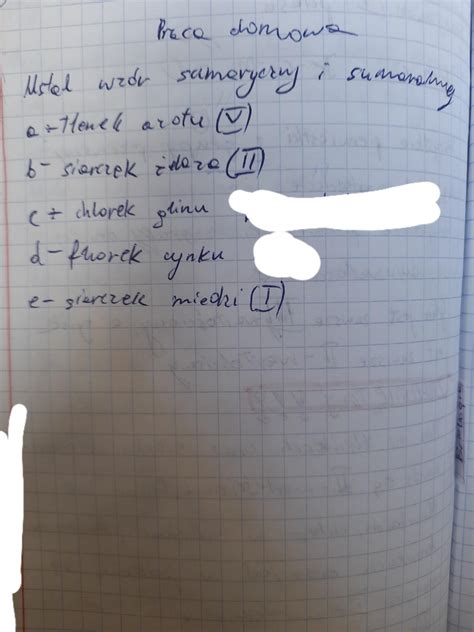 Praca domowa
Ustal wzór sumaryczny i
a - tlenek azotu (V)
b - siarczek żelaza (II)
c - chlorek glinu
d - fluorek cynku
e - siarczek miedzi (I)